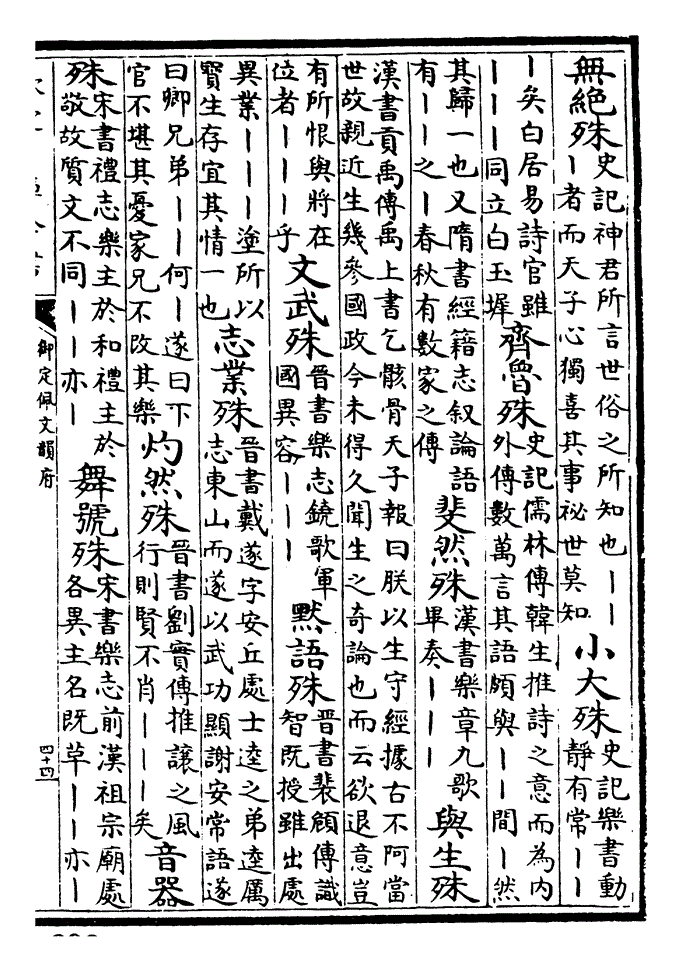 無絶殊 史記神君所言世俗之所知也丨丨
丨者而天子心獨喜其事祕世莫知
小大殊 史記樂書動
靜有常丨丨
丨矣白居易詩官雖
丨丨丨同立白玉墀
齊魯殊 史記儒林傳韓生推詩之意而為内
外傳數萬言其語頗與丨丨間丨然
其歸一也又隋書經籍志叙論語
有丨丨之丨春秋有數家之傳
斐然殊 漢書樂章九歌
畢奏丨丨丨
與生殊
漢書貢禹傳禹上書乞骸骨天子報曰朕以生守經據古不阿當
世故親近生幾參國政今未得久聞生之奇論也而云欲退意豈
有所恨與將在
位者丨丨丨乎
文武殊 晉書樂志鐃歌軍
國異容丨丨丨
默語殊 晉書裴頠傳識
智既授雖出處
異業丨丨丨塗所以
寳生存宜其情一也
志業殊 晉書戴遂字安丘處士逵之弟逵厲
志東山而遂以武功顯謝安常語遂
曰卿兄弟丨丨何丨遂曰下
官不堪其憂家兄不改其樂
灼然殊 晉書劉實傳推讓之風
行則賢不肖丨丨丨矣
音器
殊 宋書禮志樂主於和禮主於
敬故質文不同丨丨亦丨
舞號殊 宋書樂志前漢祖宗廟處
各異主名既草丨丨亦丨
御定佩文韻府
四十四